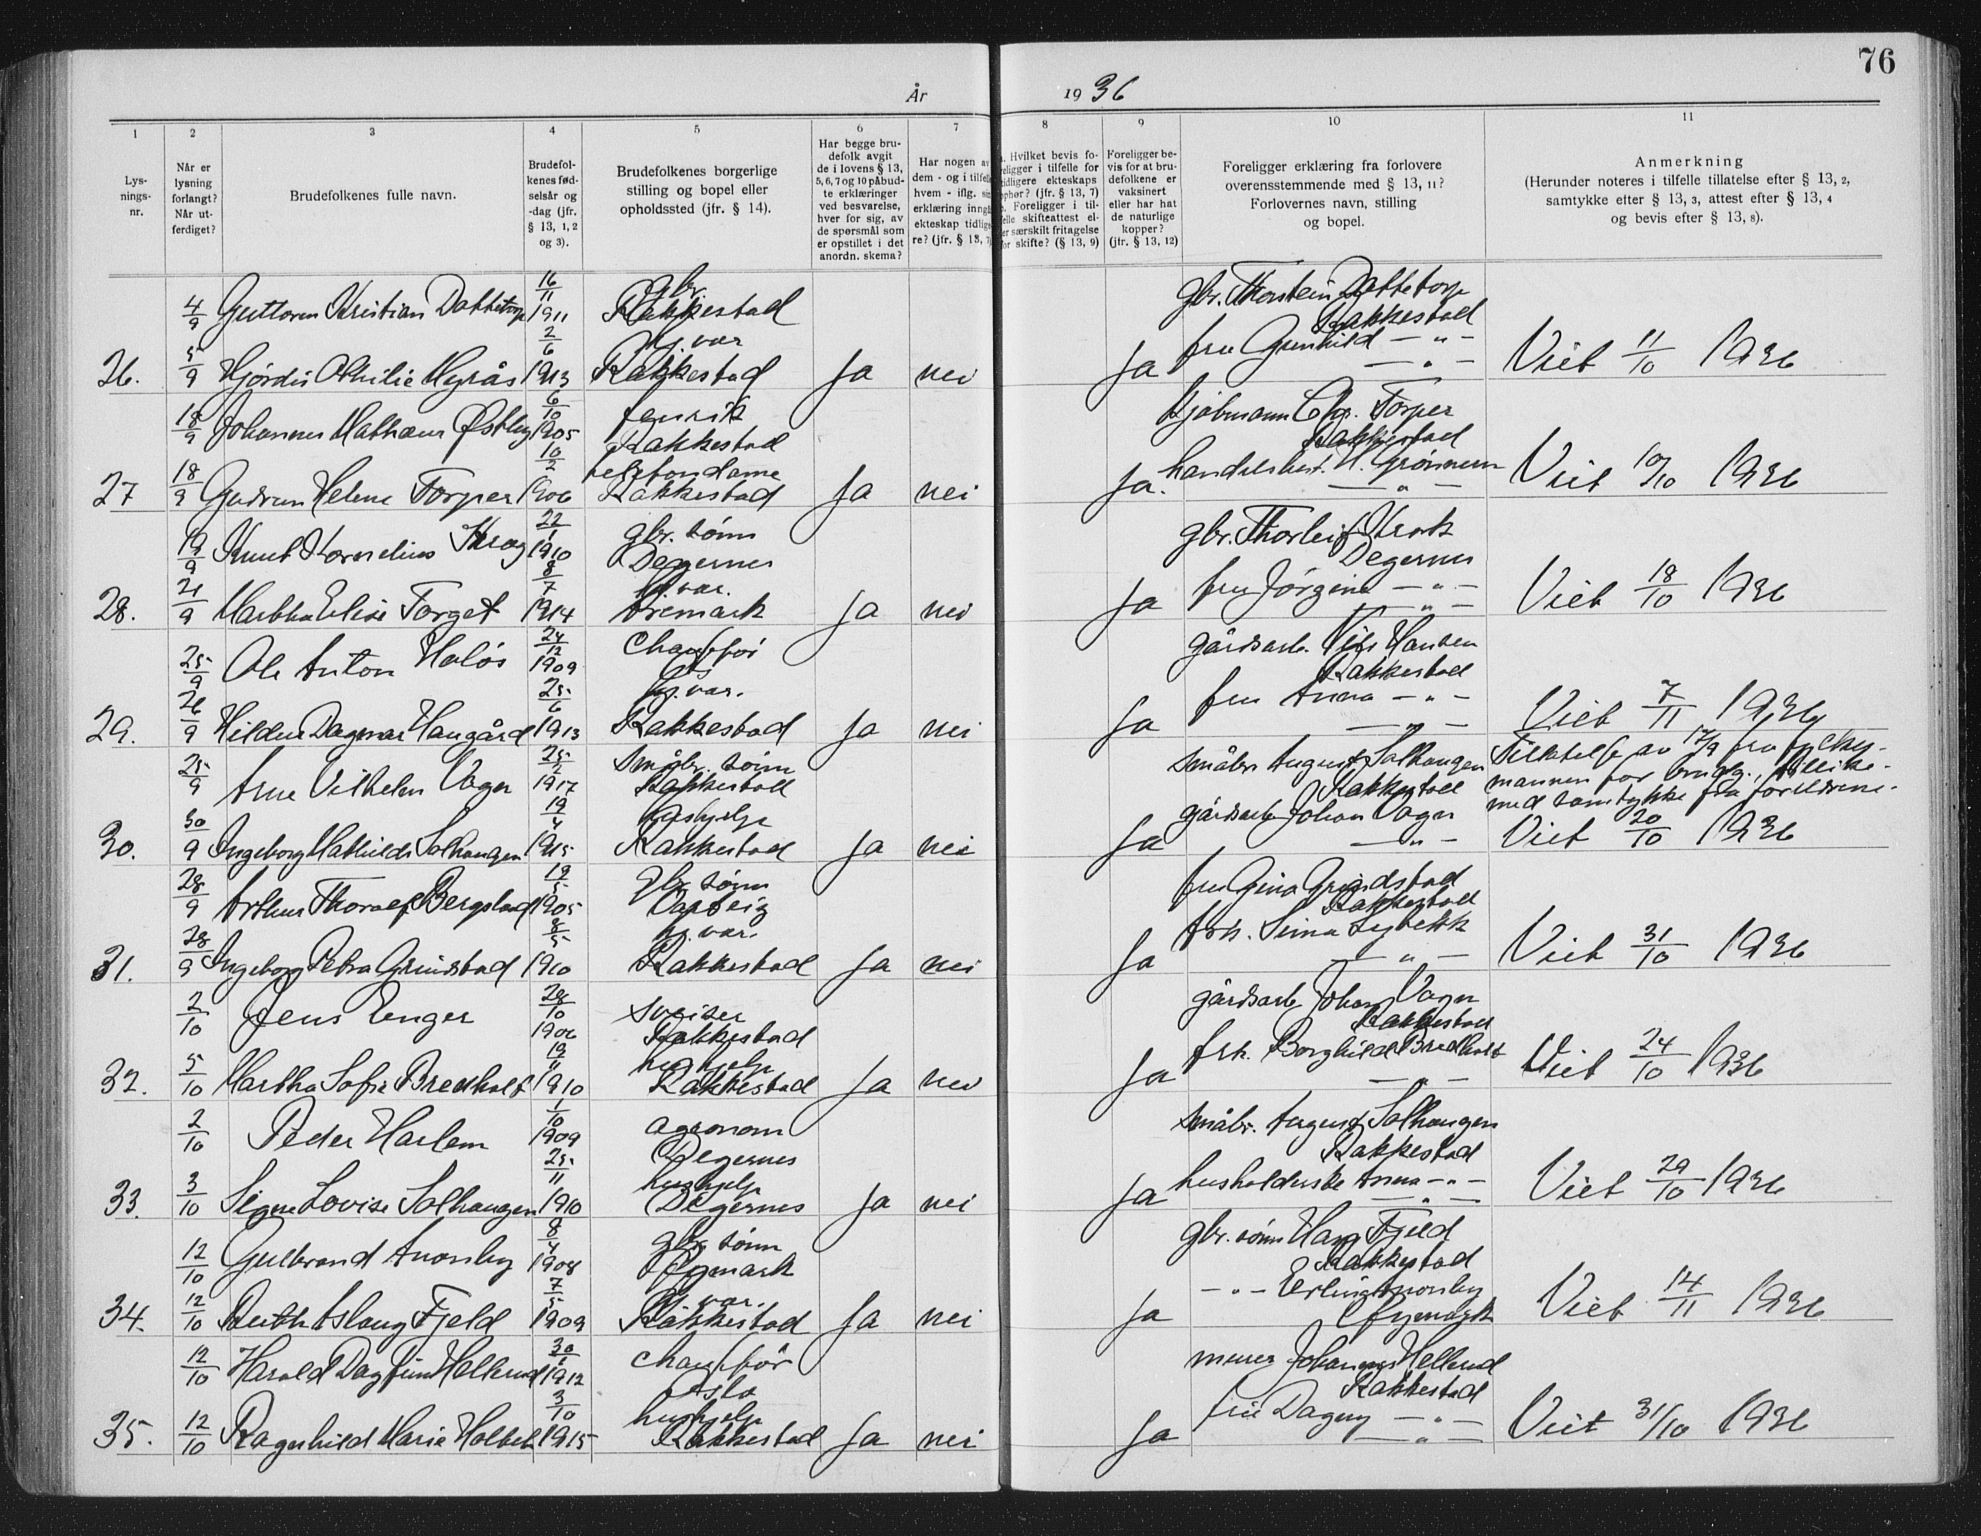 76
År 1936
1 2 3 4 5 6 7 8 9 10 11
Lys-
nings-
nr.
Når er
lysning
forlangt?
Når ut-
ferdiget?
Brudefolkenes fulle navn.
Brudefol-
kenes fød-
selsår og
-dag (jfr.
§ 13, 1, 2
og 3).
Brudefolkenes borgerlige
stilling og bopel eller
opholdssted (jfr. § 14).
Har begge bru-
defolk avgit
de i lovens § 13,
5, 6, 7 og 10 påbud-
te erklæringer
ved besvarelse,
hver for sig, av
de spørsmål som
er opstillet i det
anordn. skema?
Har nogen av
dem - og i tilfelle
hvem - iflg. sin
erklæring inngå
ekteskap tidlige
re? (jfr. § 13, 7)
. Hvilket bevis fo-
religger i tilfelle for
tidligere ekteskaps
ophør? (jfr. § 13, 7)
. Foreligger i til-
felle skifteattest el-
er særskilt fritagelse
for skifte? (§ 13, 9)
Foreligger be-
vis for at bru-
defolkene er
vaksinert
eller har hat
de naturlige
kopper?
(jfr. § 13, 12)
Foreligger erklæring fra forlovere
overensstemmende med § 13, 11?
Forlovernes navn, stilling
og bopel.
Anmerkning
(Herunder noteres i tilfelle tillatelse efter § 13, 2,
samtykke efter § 13, 3, attest efter § 13, 4
og bevis efter § 13, 8).
4/9 Guttorm Kristian Dattetorp 16/11 1911 gbr. Rakkestad gbr. Thorstein Dattetorp Rakkestad
26. 5/9 Hjørdis Othilie Myrås 2/6 1913 hj. var Rakkestad Ja nei Ja fru Gunhild -"- -"- Viet 11/10 1936
18/9 Johannes Mathæus Østby 6/10 1905 fenrik Rakkestad kjøbmann Chr. Torper Rakkestad
27 18/9 Gudrun Helene Torper 10/2 1906 telefondame Rakkestad Ja nei Ja. handelsbest. H. Grønnern -"- Viet 10/10 1936
19/9 Knut Kornelius Krog 22/1 1910 gbr. sønn Degernes gbr. Thorleif Krok Degernes
28. 21/9 Martha Elise Torget 8/7 1914 hj. var. Aremark Ja nei Ja fru Jørgine -"- -"- Viet 18/10 1936
25/9 Ole Anton Holøs 24/12 1909 Chauffør gårdsarb. Nils Hansen Rakkestad
29. 26/9 Hildur Dagmar Haugård 25/6 1913 hj. var. Rakkestad Ja nei Ja fru Anna -"- -"- Viet 7/11 1936
25/9 Arne Vilhelm Vagn 25/2 1917 småbr. sønn Rakkestad småbr. August Solhaugen Rakkestad Tillatelse av 17/9 fra fylkes-
mannen for brudg., tillike-
med samtykke fra foreldrene.
30. 30/9 Ingeborg Mathilde Solhaugen 19/4 1915 hushjelp Rakkestad Ja nei Ja gårdsarb. Johan Vagn -"- Viet 20/10 1936
28/9 Arthur Thoralf Bergstad 19/5 1905 gbr. sønn Varteig fru Gina Grindstad Rakkestad
31. 28/9 Ingeborg Petra Grindstad 8/5 1910 hj. var. Rakkestad Ja nei Ja frk. Signa Lybekk -"- Viet 31/10 1936
2/10 Jens Enger 28/10 1906 sveiser Rakkestad gårdsarb. Johan Vagn Rakkestad
32. 5/10 Martha Sofie Bredholt 19/11 1910 hushjelp Rakkestad Ja nei Ja frk. Borghild Bredholt -"- Viet 24/10 1936
2/10 Peder Harlem 1/10 1909 agronom Degernes småbr. August Solhaugen Rakkestad
33. 3/10 Signe Lovise Solhaugen 25/11 1910 hushjelp Degernes Ja nei Ja husholderske Anna -"- -"- Viet 29/10 1936
12/10 Gulbrand Anonby 8/4 1908 gbr. sønn Øymark gbr. sønn Hans Fjeld Rakkestad
34. 12/10 Ruth Aslaug Fjeld 7/5 1909 hj. var. Rakkestad Ja nei Ja -"- Erling Anonby Øymark Viet 14/11 1936
12/10 Harald Dagfinn Hellerud 30/1 1912 chauffør Oslo murer Johannes Hellerud Rakkestad
35. 12/10 Ragnhild Marie Holbek 3/10 1915 hushjelp Rakkestad Ja nei Ja fru Dagny -"- -"- Viet 31/10 1936